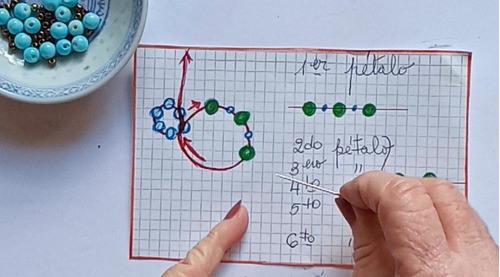 1er pétalo
2do pétalo
3ero "
4to
5to
6to "